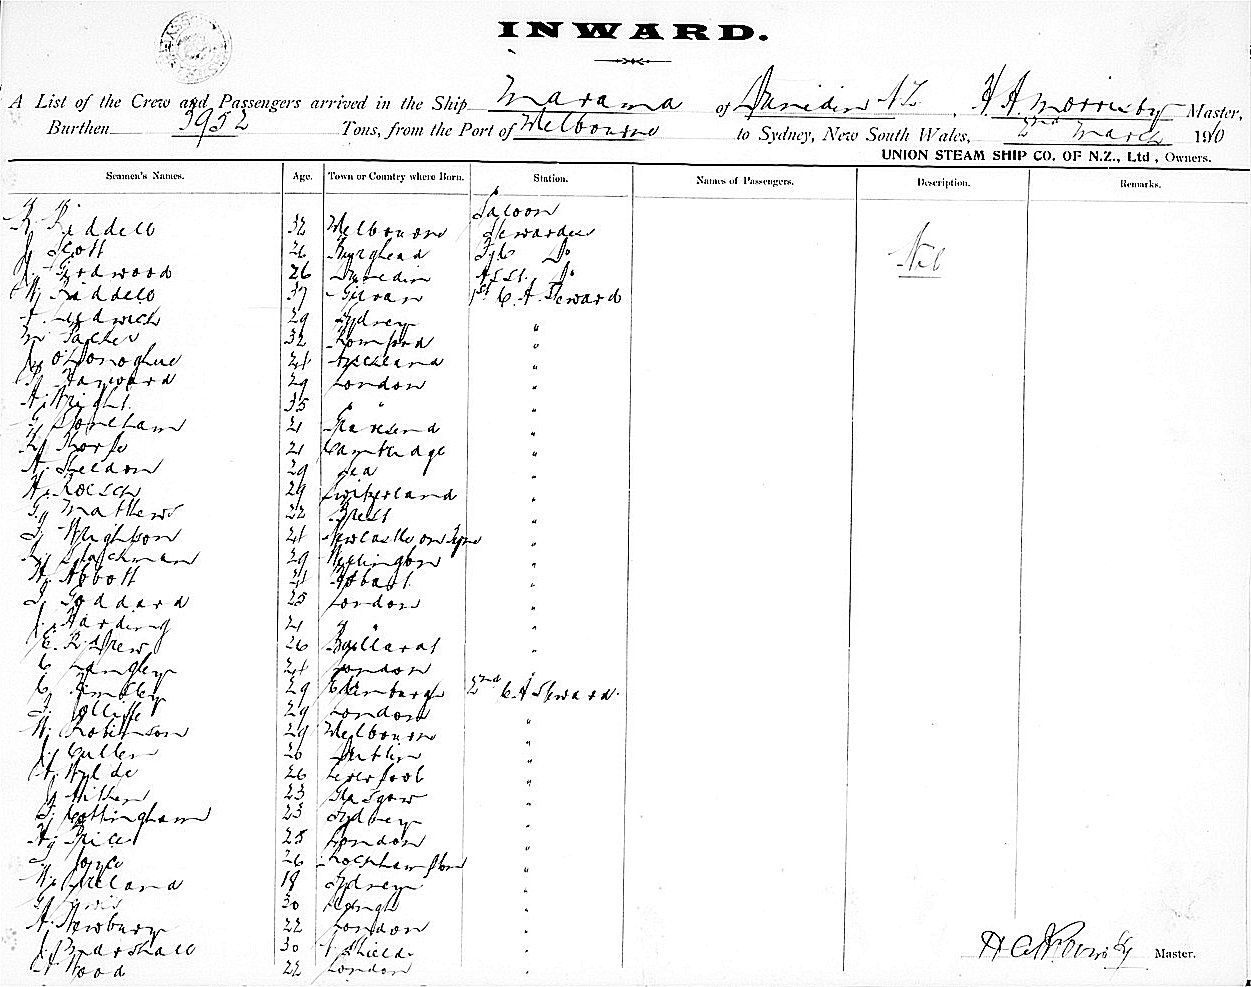 INWARD.
A List of the Crew and Passengers arrived in the Ship Marama of Dunedin N.Z., H A Morrisby Master,
Burthen 3952 Tons, from the Port of Melbourne to Sydney, New South Wales, 2nd March 1910
UNION STEAM SHIP CO. OF N.Z., Ltd, Owners.
Seamen's Names. Age. Town or Country where Born. Station. Names of Passengers. Description. Remarks.
Saloon
Riddell 32 Melbourne Stewardess
J Scott 26 Burghead Do Nil
Girdwood 26 Dunedin Do
W Riddell 37 Girvan 1st C. A. Steward
29 Sydney "
M 32 Romford "
J O'Donoghue 21 Auckland "
Hayward 29 London "
A Wright 35 " "
G 21 Gravesend "
Thorpe 21 Cambridge "
A Sheldon 29 Sea "
H. Roesch 29 Switzerland "
G Matthews 22 "
Wrightson 21 Newcastle on Tyne "
29 Wellington "
A Abbott 21 Hobart "
J Goddard 25 London "
J. Harding 21 " "
E. R. Drew 26 Ballarat "
C Langley 21 London "
C 29 Edinburgh 2nd C. A Steward
J Jolliffe 29 London "
W. Robinson 29 Melbourne "
J Cullen 20 Dublin "
A. Wylde 26 Liverpool "
J 23 Glasgow "
J. Cottingham 23 Sydney "
H Price 25 London "
Joyce 26 "
W. Ireland 19 Sydney "
G Lewis 30 "
A. Newbury 22 London "
J. Marshall 30 Shields "
A Wood 22 London "
H A Morrisby Master.